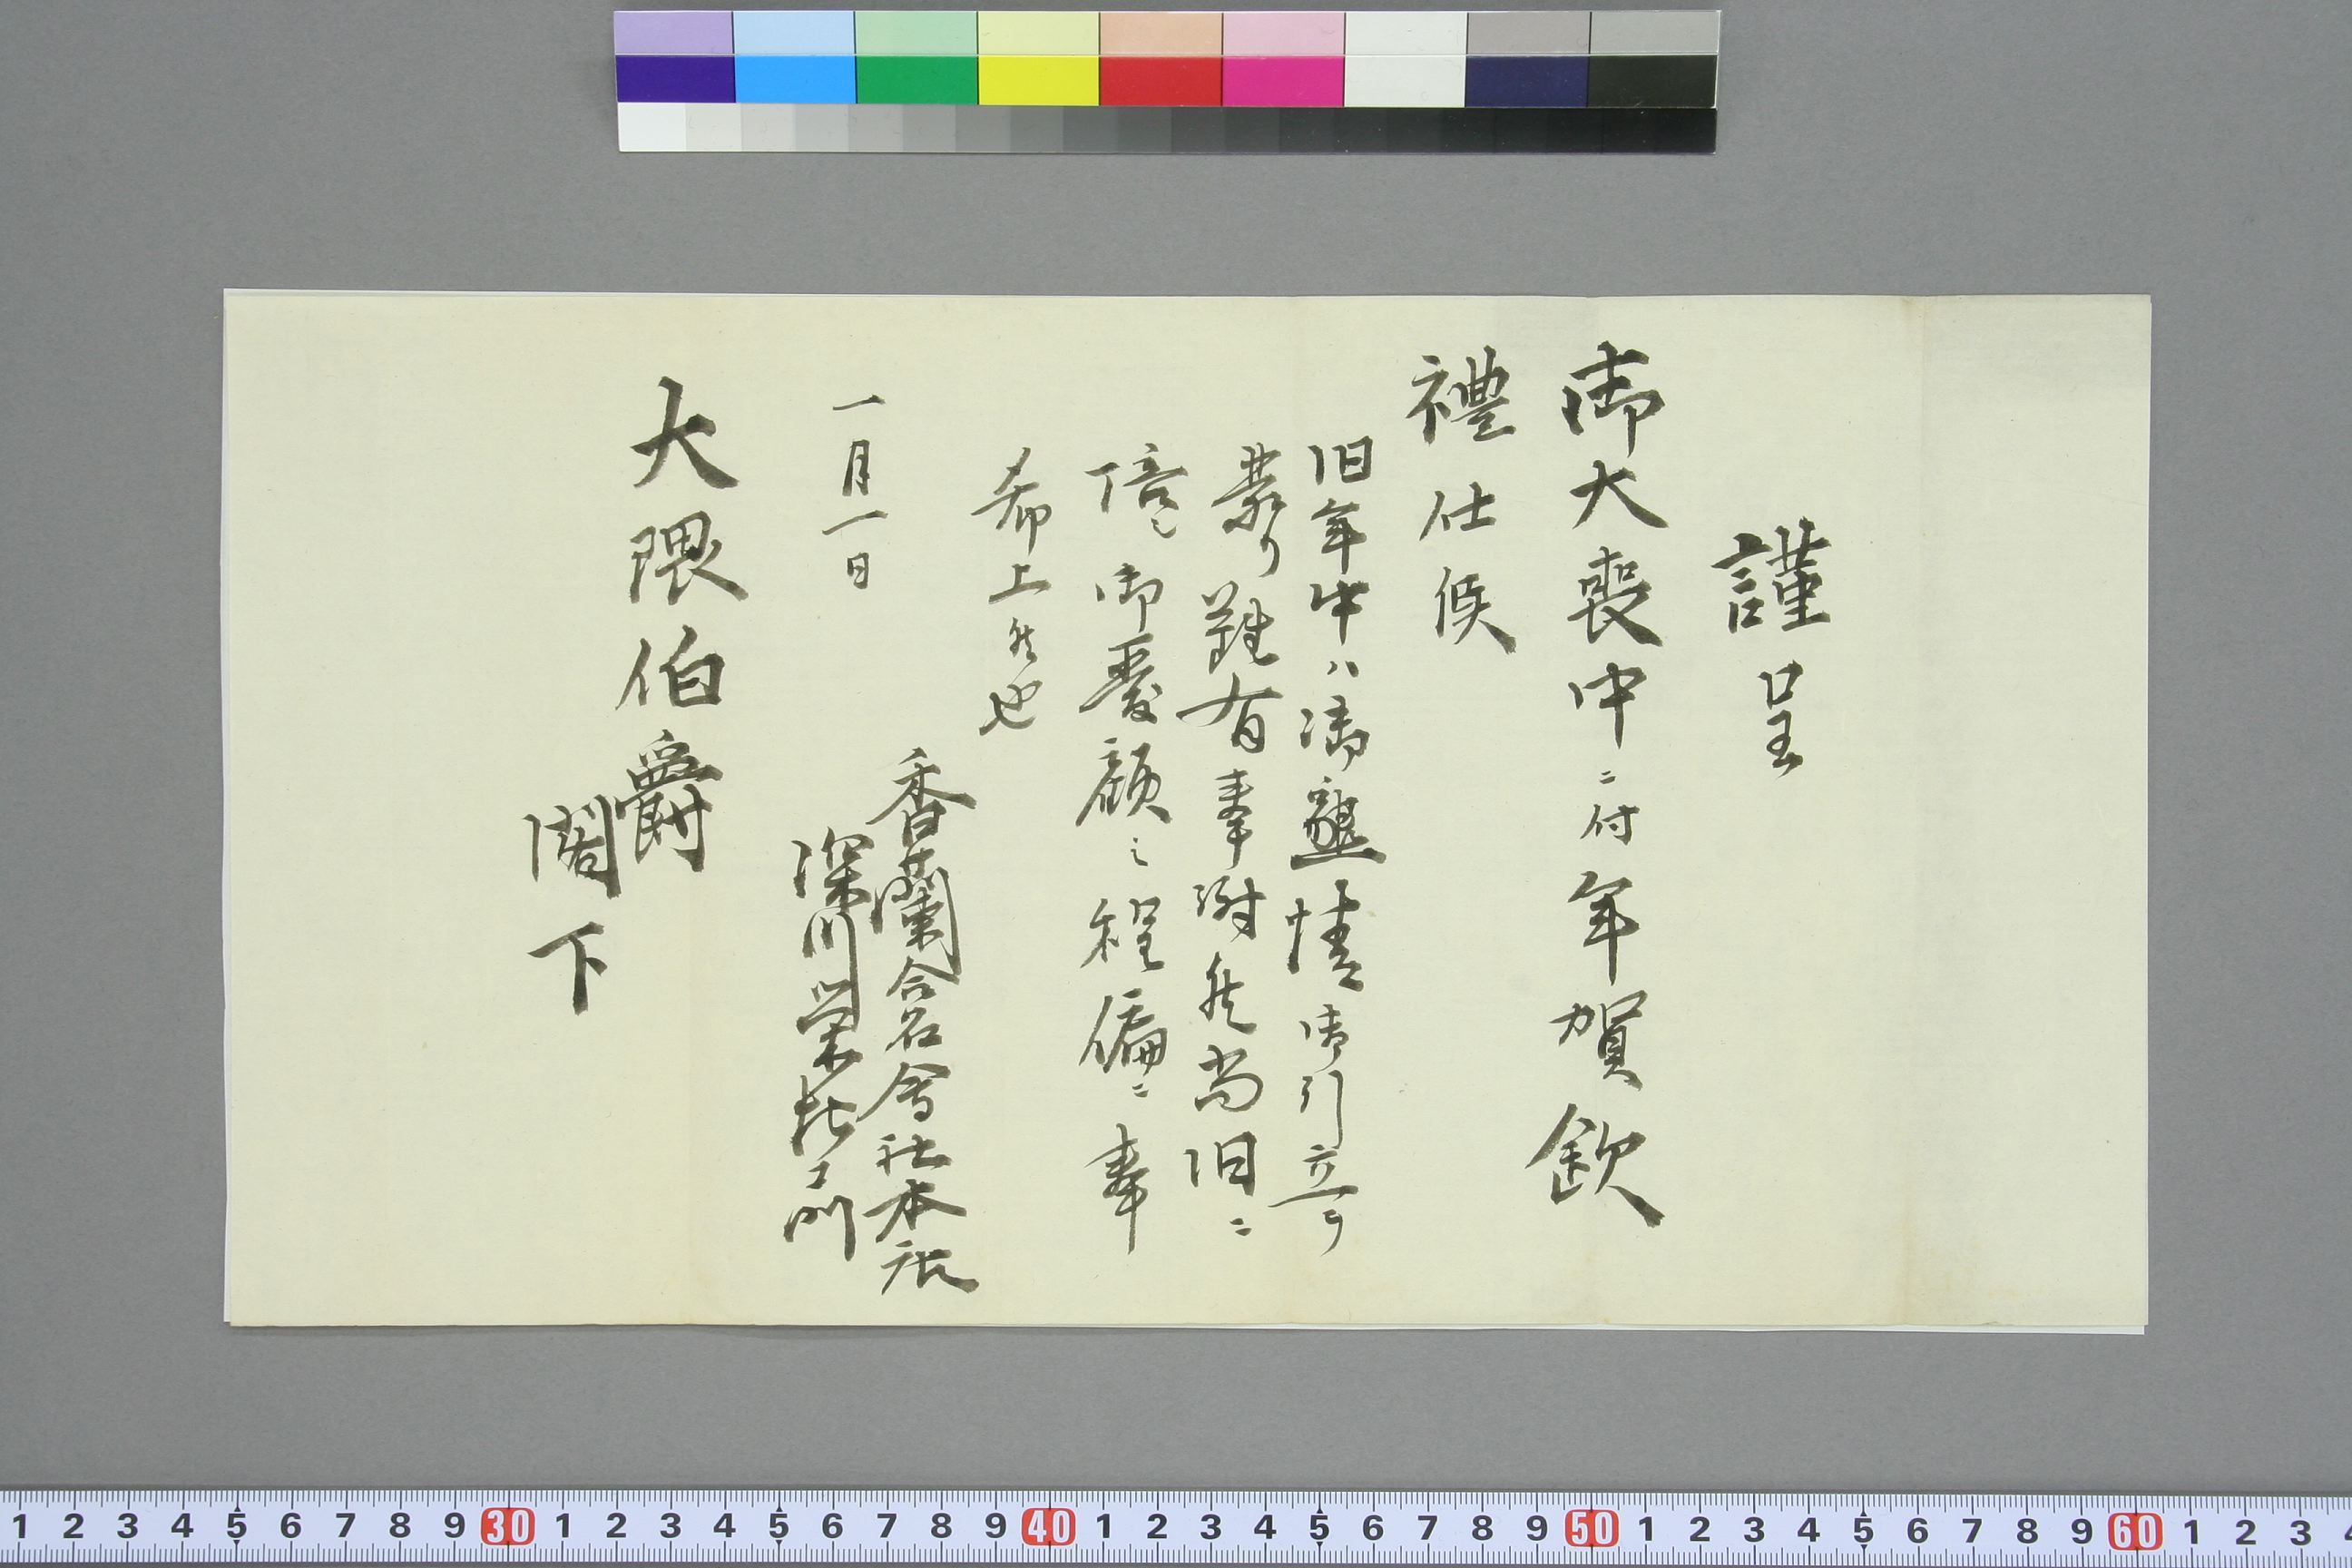 謹呈
御大喪中ニ付年賀欽
禮仕候
旧年中ハ御懿情御引立ヲ
蒙リ難有奉謝候尚旧ニ
倍シ御愛顧之程偏ニ奉
希上候也
一月一日
香蘭合名會社本社
深川栄
大隈伯爵
閣下
1 2 3 4 5 6 7 8 9 30 1 2 3 4 5 6 7 8 9 40 1 2 3 4 5 6 7 8 9 50 1 2 3 4 5 6 7 8 9 60 1 2 3